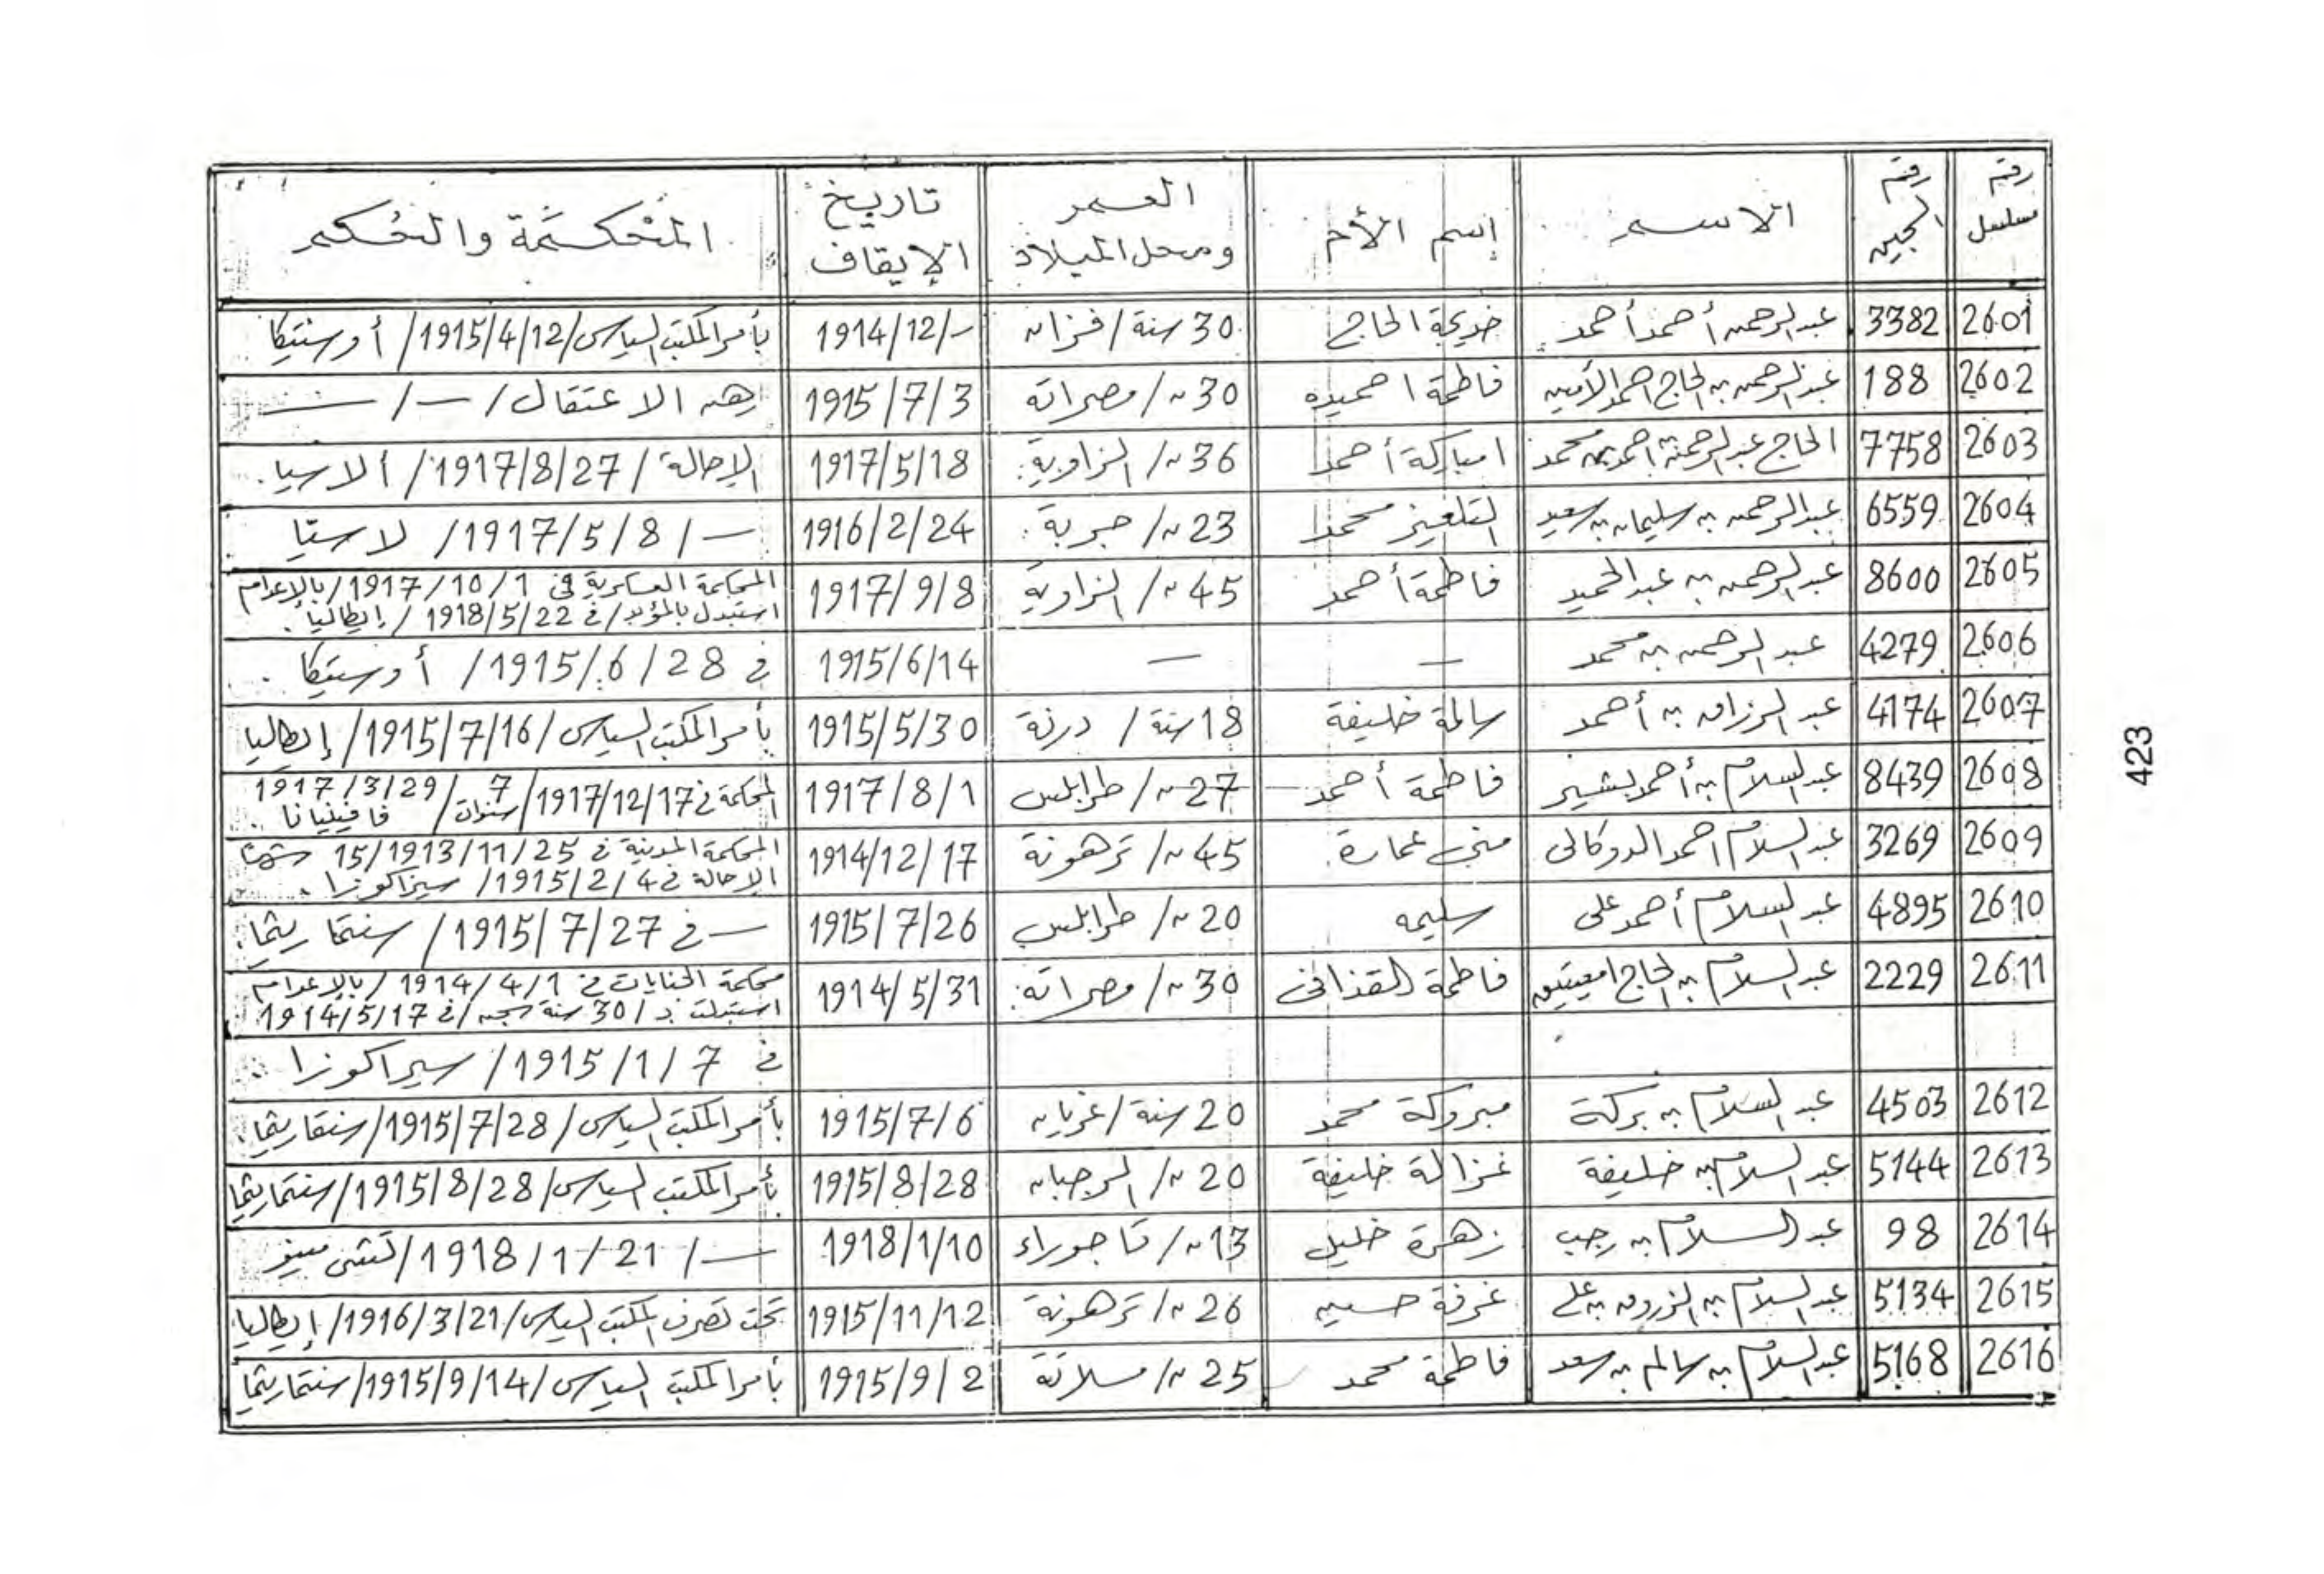 رقم مسلسل | رقم السجين | الاسم | إسم الأم | العمر ومحل الميلاد | تاريخ الإيقاف | المحكمة والحكم
2601 | 3382 | عبدالرحمن أحمد أحمد | خديجة الحاج | 30 سنة / فزان | -/1914/12 | بأمر المكتب السياسى / 1915/4/12 / أوستيكا
2602 | 188 | عبدالرحمن بن الحاج احمد الأمين | فاطمة احميده | 30 س / مصراتة | 1915/7/3 | رهن الاعتقال / — / —
2603 | 7758 | الحاج عبدالرحمن احمد بن محمد | امباركة أحمد | 36 س / الزاوية | 1917/5/18 | الإحالة / 1917/8/27 / ألاسيا
2604 | 6559 | عبدالرحمن بن سليمان بن سعيد | محمد | 23 س / جربة | 1916/2/24 | — / 1917/5/8 / لاستيا
2605 | 8600 | عبدالرحمن بن عبدالحميد | فاطمة أحمد | 45 س / الزاوية | 1917/9/8 | المحكمة العسكرية فى 1917/10/1 / بالإعدام
استبدل بالمؤبد / فى 1918/5/22 / إيطاليا.
2606 | 4279 | عبدالرحمن بن محمد | — | — | 1915/6/14 | فى 1915/6/28 / أوستيكا
2607 | 4174 | عبدالرزاق بن أحمد | سالمة خليفة | 18 سنة / درنة | 1915/5/30 | بأمر المكتب السياسى / 1915/7/16 / إيطاليا
2608 | 8439 | عبدالسلام بن أحمد بشير | فاطمة أحمد | 27 س / طرابلس | 1917/8/1 | المحكمة فى 1917/12/17 / 7 سنوات / 1917/3/29
فافينيانا.
2609 | 3269 | عبدالسلام احمد الدوكالى | منى عمارة | 45 س / ترهونة | 1914/12/17 | المحكمة المدنية فى 1913/11/25 / 15 شهرًا
الإحالة فى 1915/2/4 / سيراكوزا.
2610 | 4895 | عبدالسلام أحمد على | سليمه | 20 س / طرابلس | 1915/7/26 | — فى 1915/7/27 / سنتماريتما.
2611 | 2229 | عبدالسلام بن الحاج امعيتيق | فاطمة القذافى | 30 س / مصراتة | 1914/5/31 | محكمة الجنايات فى 1914/4/1 / بالإعدام
استبدلت بـ / 30 سنة سجن / فى 1914/5/17
فى 1915/1/7 / سيراكوزا
2612 | 4503 | عبدالسلام بن بركة | مبروكة محمد | 20 سنة / غريان | 1915/7/6 | بأمر المكتب السياسى / 1915/7/28 / سنتماريتما.
2613 | 5144 | عبدالسلام بن خليفة | غزالة خليفة | 20 س / الرجبان | 1915/8/28 | بأمر المكتب السياسى / 1915/8/28 / سنتماريتما
2614 | 98 | عبدالسلام بن رجب | زهرة خليل | 13 س / تاجوراء | 1918/1/10 | — / 1918/1/21 /
2615 | 5134 | عبدالسلام بن الزروق بن على | غرفة حسين | 26 س / ترهونة | 1915/11/12 | تحت تصرف المكتب السياسى / 1916/3/21 / إيطاليا
2616 | 5168 | عبدالسلام بن سالم بن سعد | فاطمة محمد | 25 س / مسلاتة | 1915/9/2 | بأمر المكتب السياسى / 1915/9/14 / سنتماريتما
423